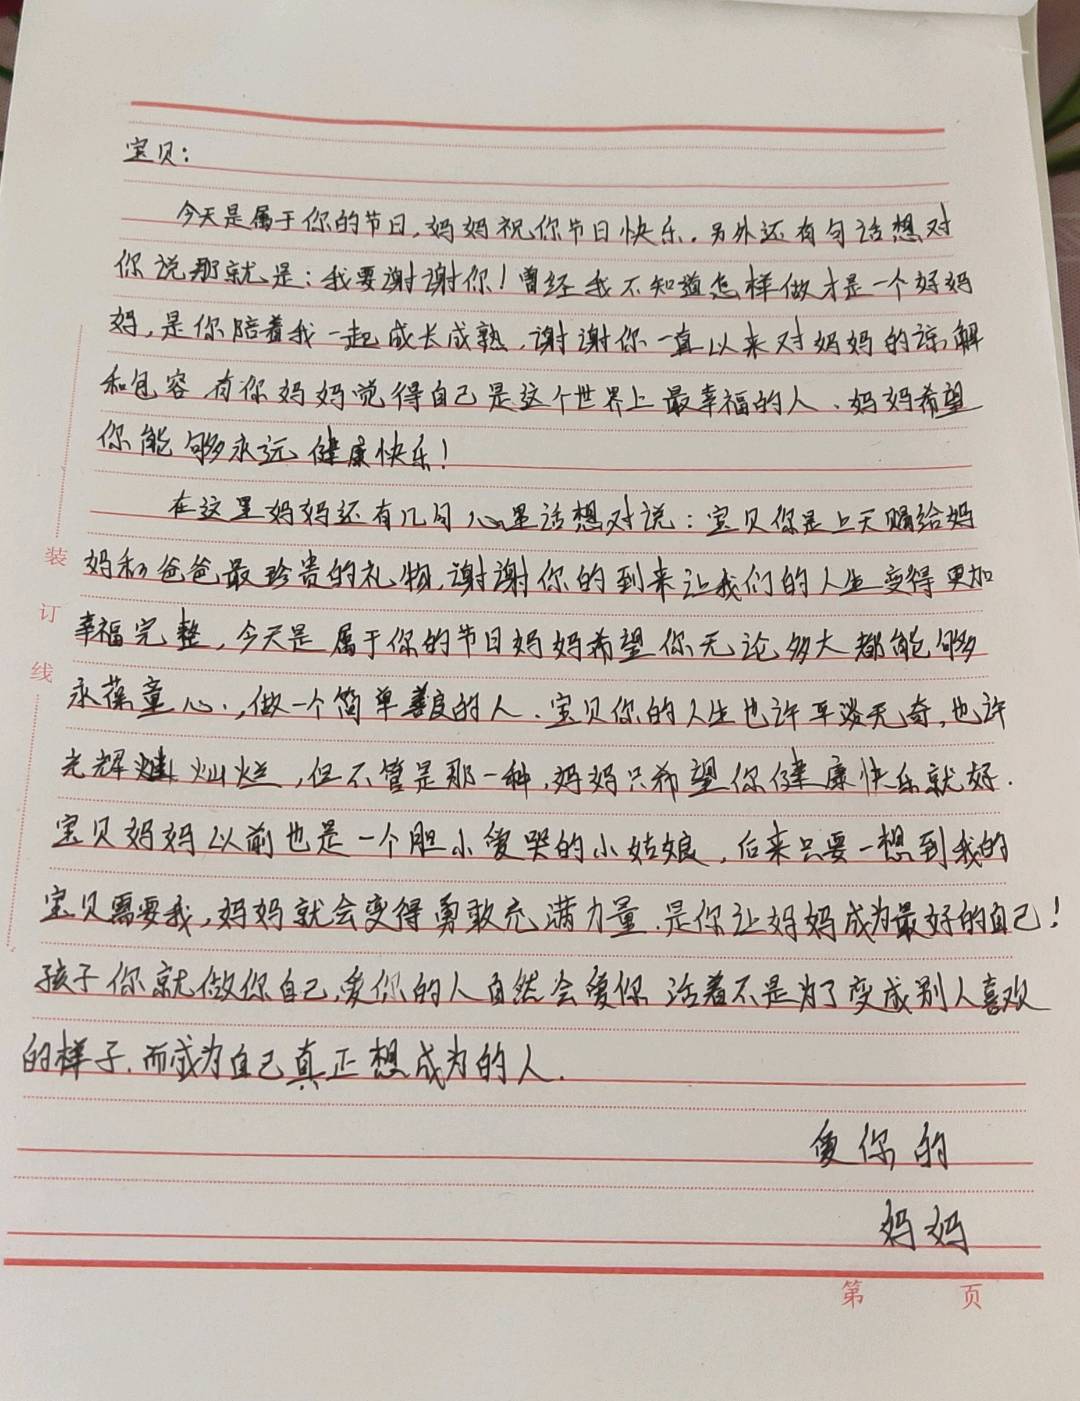 宝贝:
今天是属于你的节日,妈妈祝你节日快乐.另外还有句话想对
你说那就是:我要谢谢你!曾经我不知道怎样做才是一个好妈
妈,是你陪着我一起成长成熟,谢谢你一直以来对妈妈的谅解
和包容 有你妈妈觉得自己是这个世界上最幸福的人、妈妈希望
你能够永远健康快乐!
在这里妈妈还有几句心里话想对说:宝贝你是上天赐给妈
妈和爸爸最珍贵的礼物,谢谢你的到来让我们的人生变得更加
幸福完整,今天是属于你的节日妈妈希望你无论多大都能够
永葆童心,做一个简单善良的人.宝贝你的人生也许平淡无奇,也许
光辉灿烂,但不管是那一种,妈妈只希望你健康快乐就好.
宝贝妈妈以前也是一个胆小爱哭的小姑娘,后来只要一想到我的
宝贝需要我,妈妈就会变得勇敢充满力量.是你让妈妈成为最好的自己!
孩子你就做你自己,爱你的人自然会爱你 活着不是为了变成别人喜欢
的样子.而成为自己真正想成为的人.
爱你的
妈妈
装
订
线
第 页